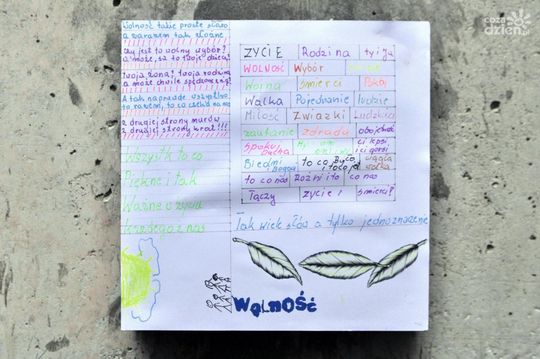 Wolność takie proste słowo
a zarazem tak złożne
Czy jest to wolny wybór?
a może, są to twoje dzieci?
Twoja żona? twoja rodzina
a może chwile spędzone?
A tak naprawdę wszystko
to razem, to co czeka na nas
z drugiej strony murów
z drugiej strony krat!!!
Wszystko to co
Piękne i tak
Ważne w życiu
Każdego z nas
ŻYCIE Rodzina ty i Ja
WOLNOŚĆ Wybór
Wojna śmierci Pokój
Walka Pojednanie ludzie
Miłość Związki Ludzkie
zaufanie zdrady obojętność
Spokój Ducha ci lepsi i ci gorsi
Biedni Bogaci to co było i to co jest wieczna walka
to co nas Różni i to co nas
Łączy życie i śmierci?
Tak wiele słów a tylko jednoznaczne
WOLNOŚĆ
coza
dzien.pl